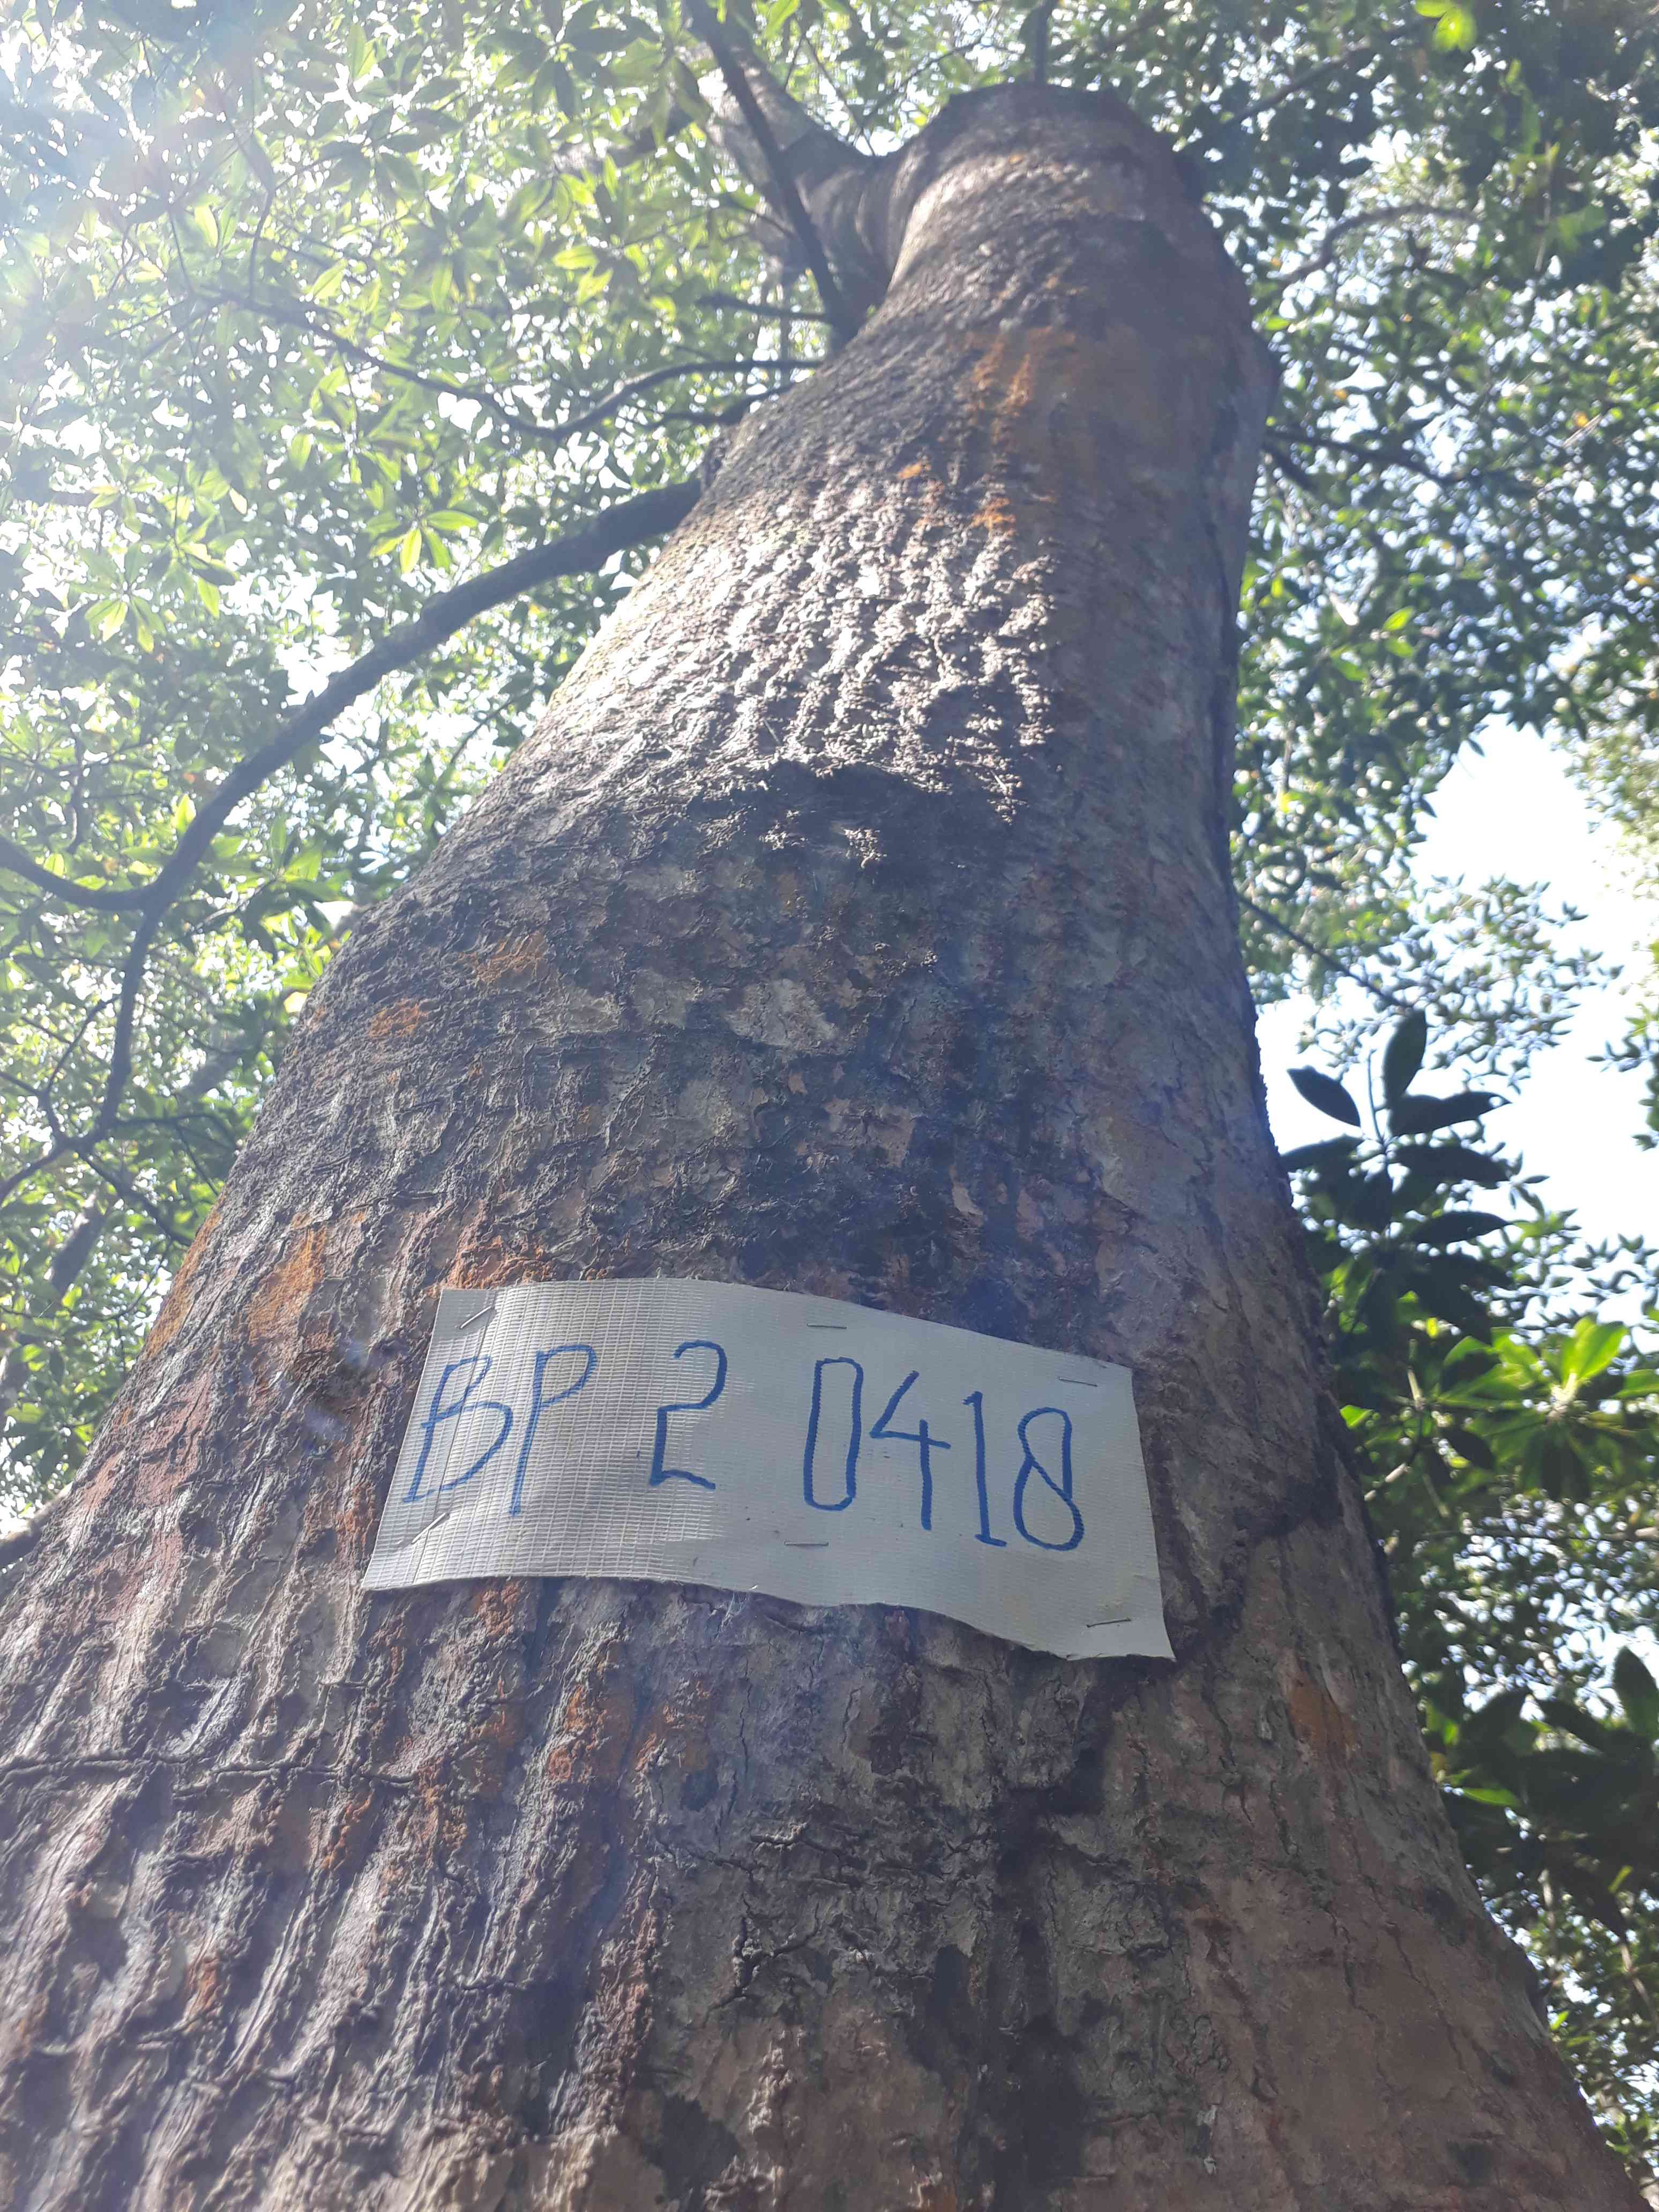 BP 2 0418